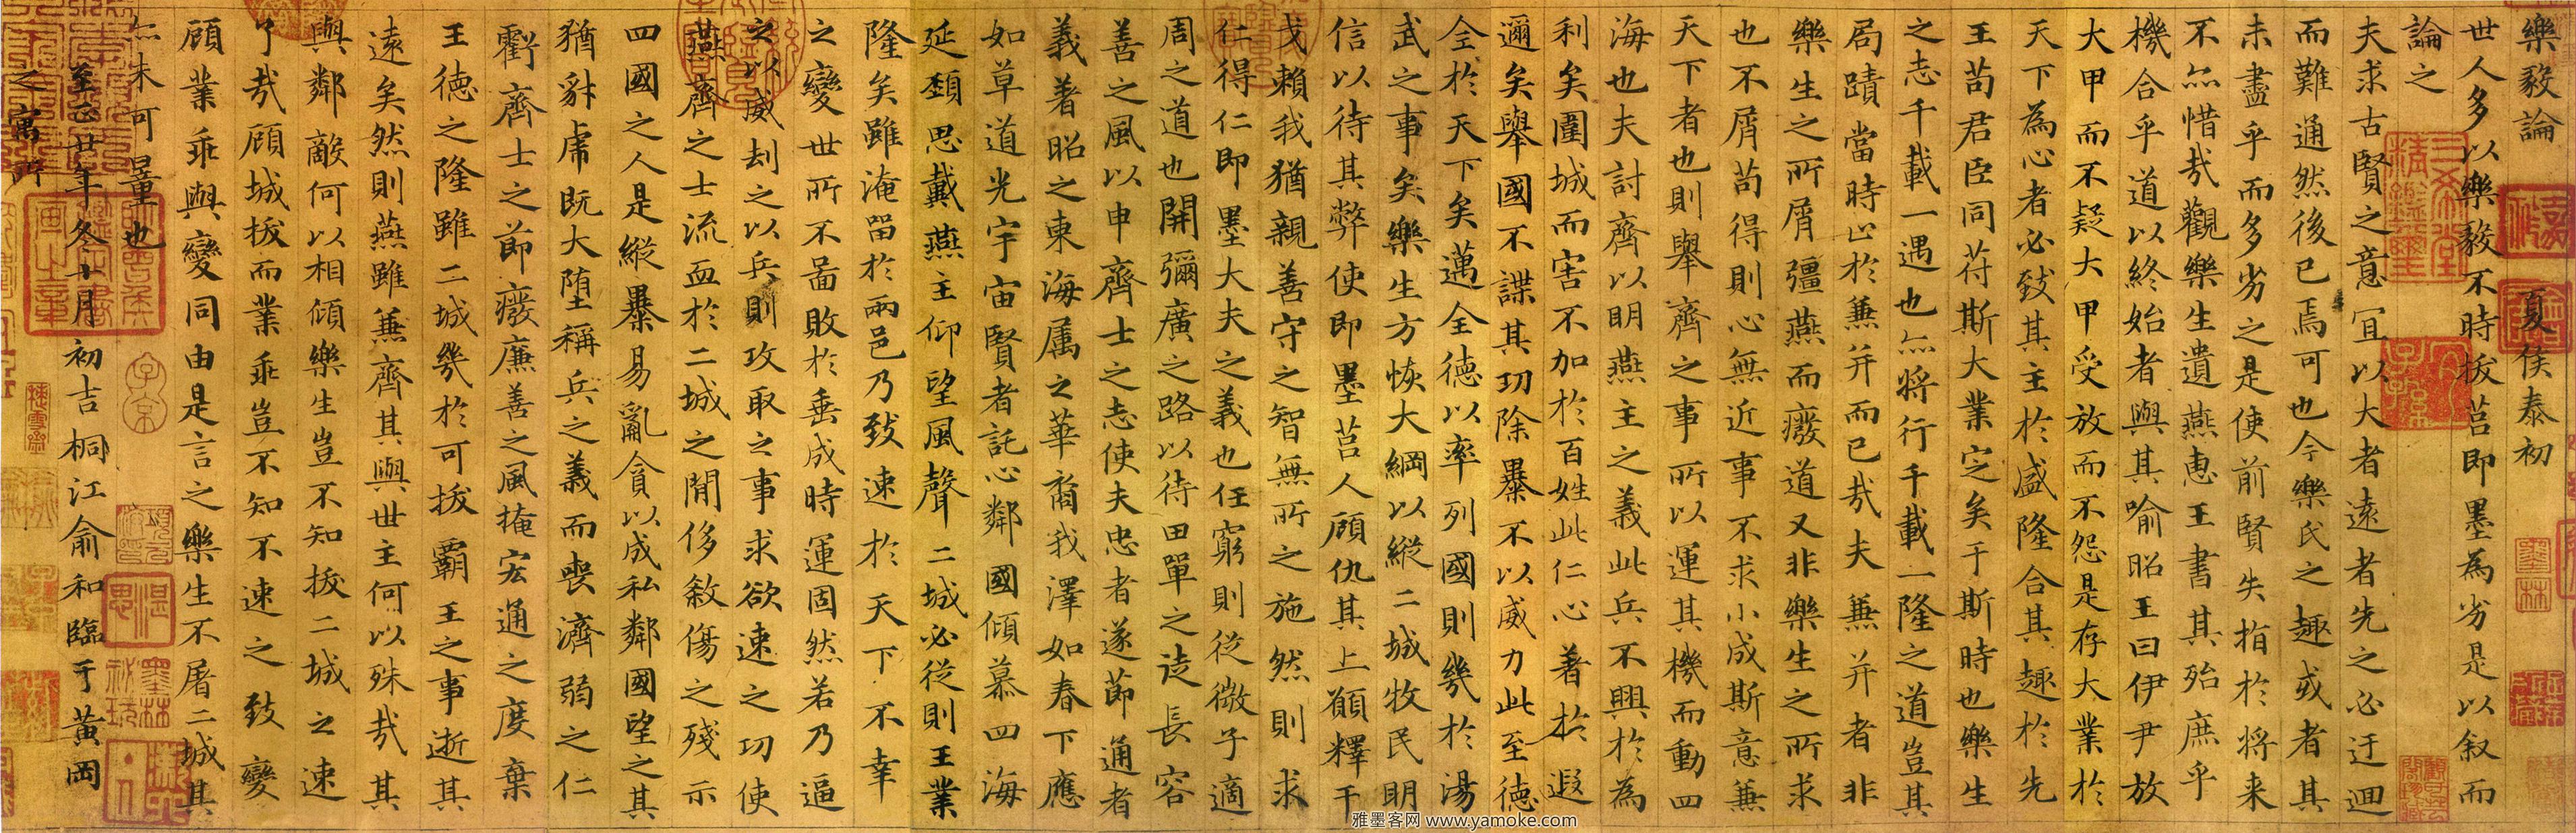 樂毅論 夏侯泰初
世人多以樂毅不時拔莒即墨為劣是以叙而
論之
夫求古賢之意宜以大者遠者先之必迂迴
而難通然後已焉可也今樂氏之趣或者其
未盡乎而多劣之是使前賢失指於將来
不亦惜哉觀樂生遺燕惠王書其殆庶乎
機合乎道以終始者與其喻昭王曰伊尹放
大甲而不疑大甲受放而不怨是存大業於
天下為心者必致其主於盛隆合其趣於先
王苟君臣同苻斯大業定矣于斯時也樂生
之志千載一遇也亦將行千載一隆之道豈其
局蹟當時止於兼并而已哉夫兼并者非
樂生之所屑彊燕而癈道又非樂生之所求
也不屑苟得則心無近事不求小成斯意兼
天下者也則舉齊之事所以運其機而動四
海也夫討齊以明燕主之義此兵不興於為
利矣圍城而害不加於百姓此仁心著於遐
邇矣舉國不謀其功除暴不以威力此至德
全於天下矣邁全德以率列國則幾於湯
武之事矣樂生方恢大綱以縱二城牧民明
信以待其弊使即墨莒人顧仇其上願釋干
戈賴我猶親善守之智無所之施然則求
仁得仁即墨大夫之義也任窮則從微子適
周之道也開彌廣之路以待田單之徒長容
善之風以申齊士之志使夫忠者遂節通者
義著昭之東海属之華裔我澤如春下應
如草道光宇宙賢者託心鄰國傾慕四海
延頸思戴燕主仰望風聲二城必從則王業
隆矣雖淹留於兩邑乃致速於天下不幸
之變世所不啚敗於垂成時運固然若乃逼
之以威刼之以兵則攻取之事求欲速之功使
燕齊之士流血於二城之閒侈殺傷之殘示
四國之人是縱暴易亂貪以成私鄰國望之其
猶豺虎既大堕稱兵之義而喪濟弱之仁
虧齊士之節癈廉善之風掩宏通之度棄
王德之隆雖二城幾於可拔霸王之事逝其
遠矣然則燕雖兼齊其與世主何以殊哉其
與鄰敵何以相傾樂生豈不知拔二城之速
了哉顧城拔而業乖豈不知不速之致變
顧業乖與變同由是言之樂生不屠二城其
亦未可量也
至正廿年冬十月初吉桐江俞和臨于黃岡
之寓所
雅墨客网 www.yamoke.com